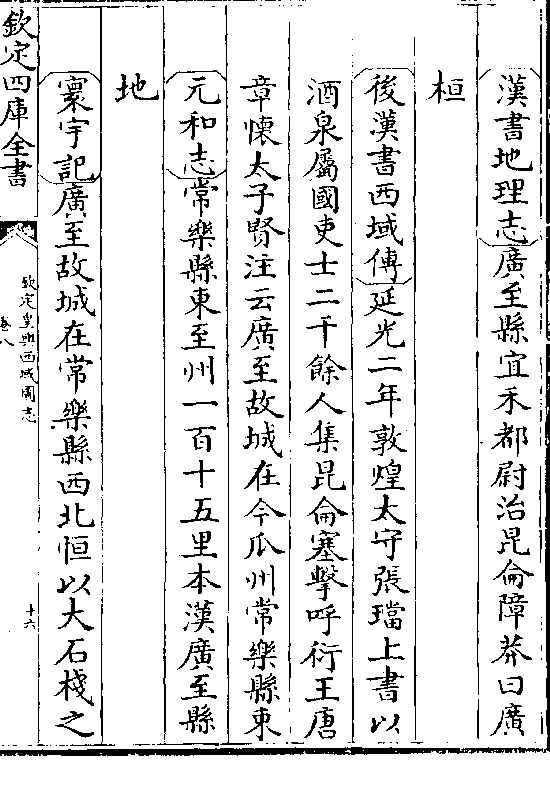 漢書地理志廣至縣宜禾都尉治昆侖障莽曰廣
桓
後漢書西域傳延光二年敦煌太守張璫上書以
酒泉屬國吏士二千餘人集昆侖塞擊呼衍王唐
章懷太子賢注云廣至故城在今瓜州常樂縣東
元和志常樂縣東至州一百十五里本漢廣至縣
地
寰宇記廣至故城在常樂縣西北恒以大石棧之
欽定四庫全書
欽定皇輿西域圖志
卷八
十六